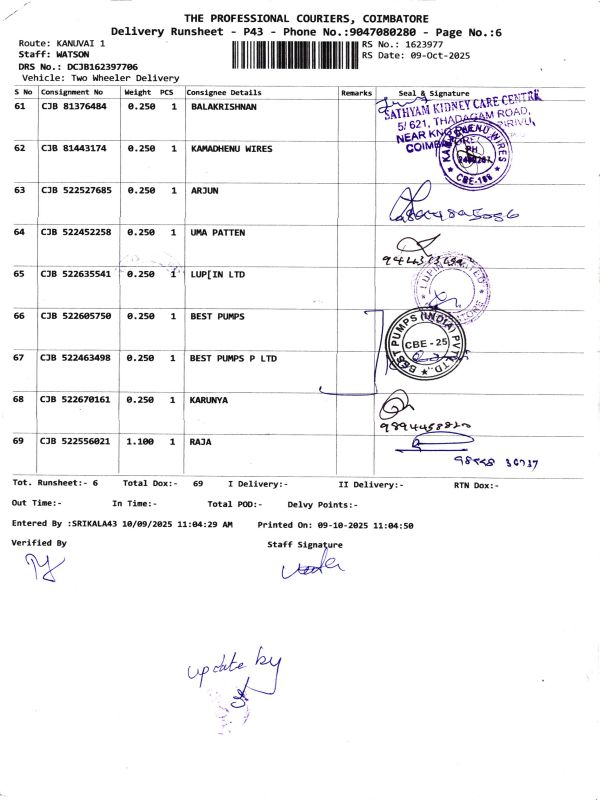 THE PROFESSIONAL COURIERS, COIMBATORE
Delivery Runsheet - P43 - Phone No.:9047080280 - Page No.:6
Route: KANUVAI 1
RS No.: 1623977
Staff: WATSON
RS Date: 09-Oct-2025
DRS No.: DCJB162397706
Vehicle: Two Wheeler Delivery
S No Consignment No Weight PCS Consignee Details Remarks Seal & Signature
61 CJB 81376484 0.250 1 BALAKRISHNAN
SATHYAM KIDNEY CARE CENTRE
5/ 621, THADAGAM ROAD,
62 CJB 81443174 0.250 1 KAMADHENU WIRES
KAMADHENU WIRES
CBE-108
63 CJB 522527685 0.250 1 ARJUN
64 CJB 522452258 0.250 1 UMA PATTEN
65 CJB 522635541 0.250 1 LUPIIN LTD
66 CJB 522605750 0.250 1 BEST PUMPS
BEST PUMPS (INDIA) PVT. LTD.,
CBE - 25
67 CJB 522463498 0.250 1 BEST PUMPS P LTD
68 CJB 522670161 0.250 1 KARUNYA
69 CJB 522556021 1.100 1 RAJA
Tot. Runsheet:- 6 Total Dox:- 69 I Delivery:- II Delivery:- RTN Dox:-
Out Time:- In Time:- Total POD:- Delvy Points:-
Entered By :SRIKALA43 10/09/2025 11:04:29 AM Printed On: 09-10-2025 11:04:50
Verified By Staff Signature
update by